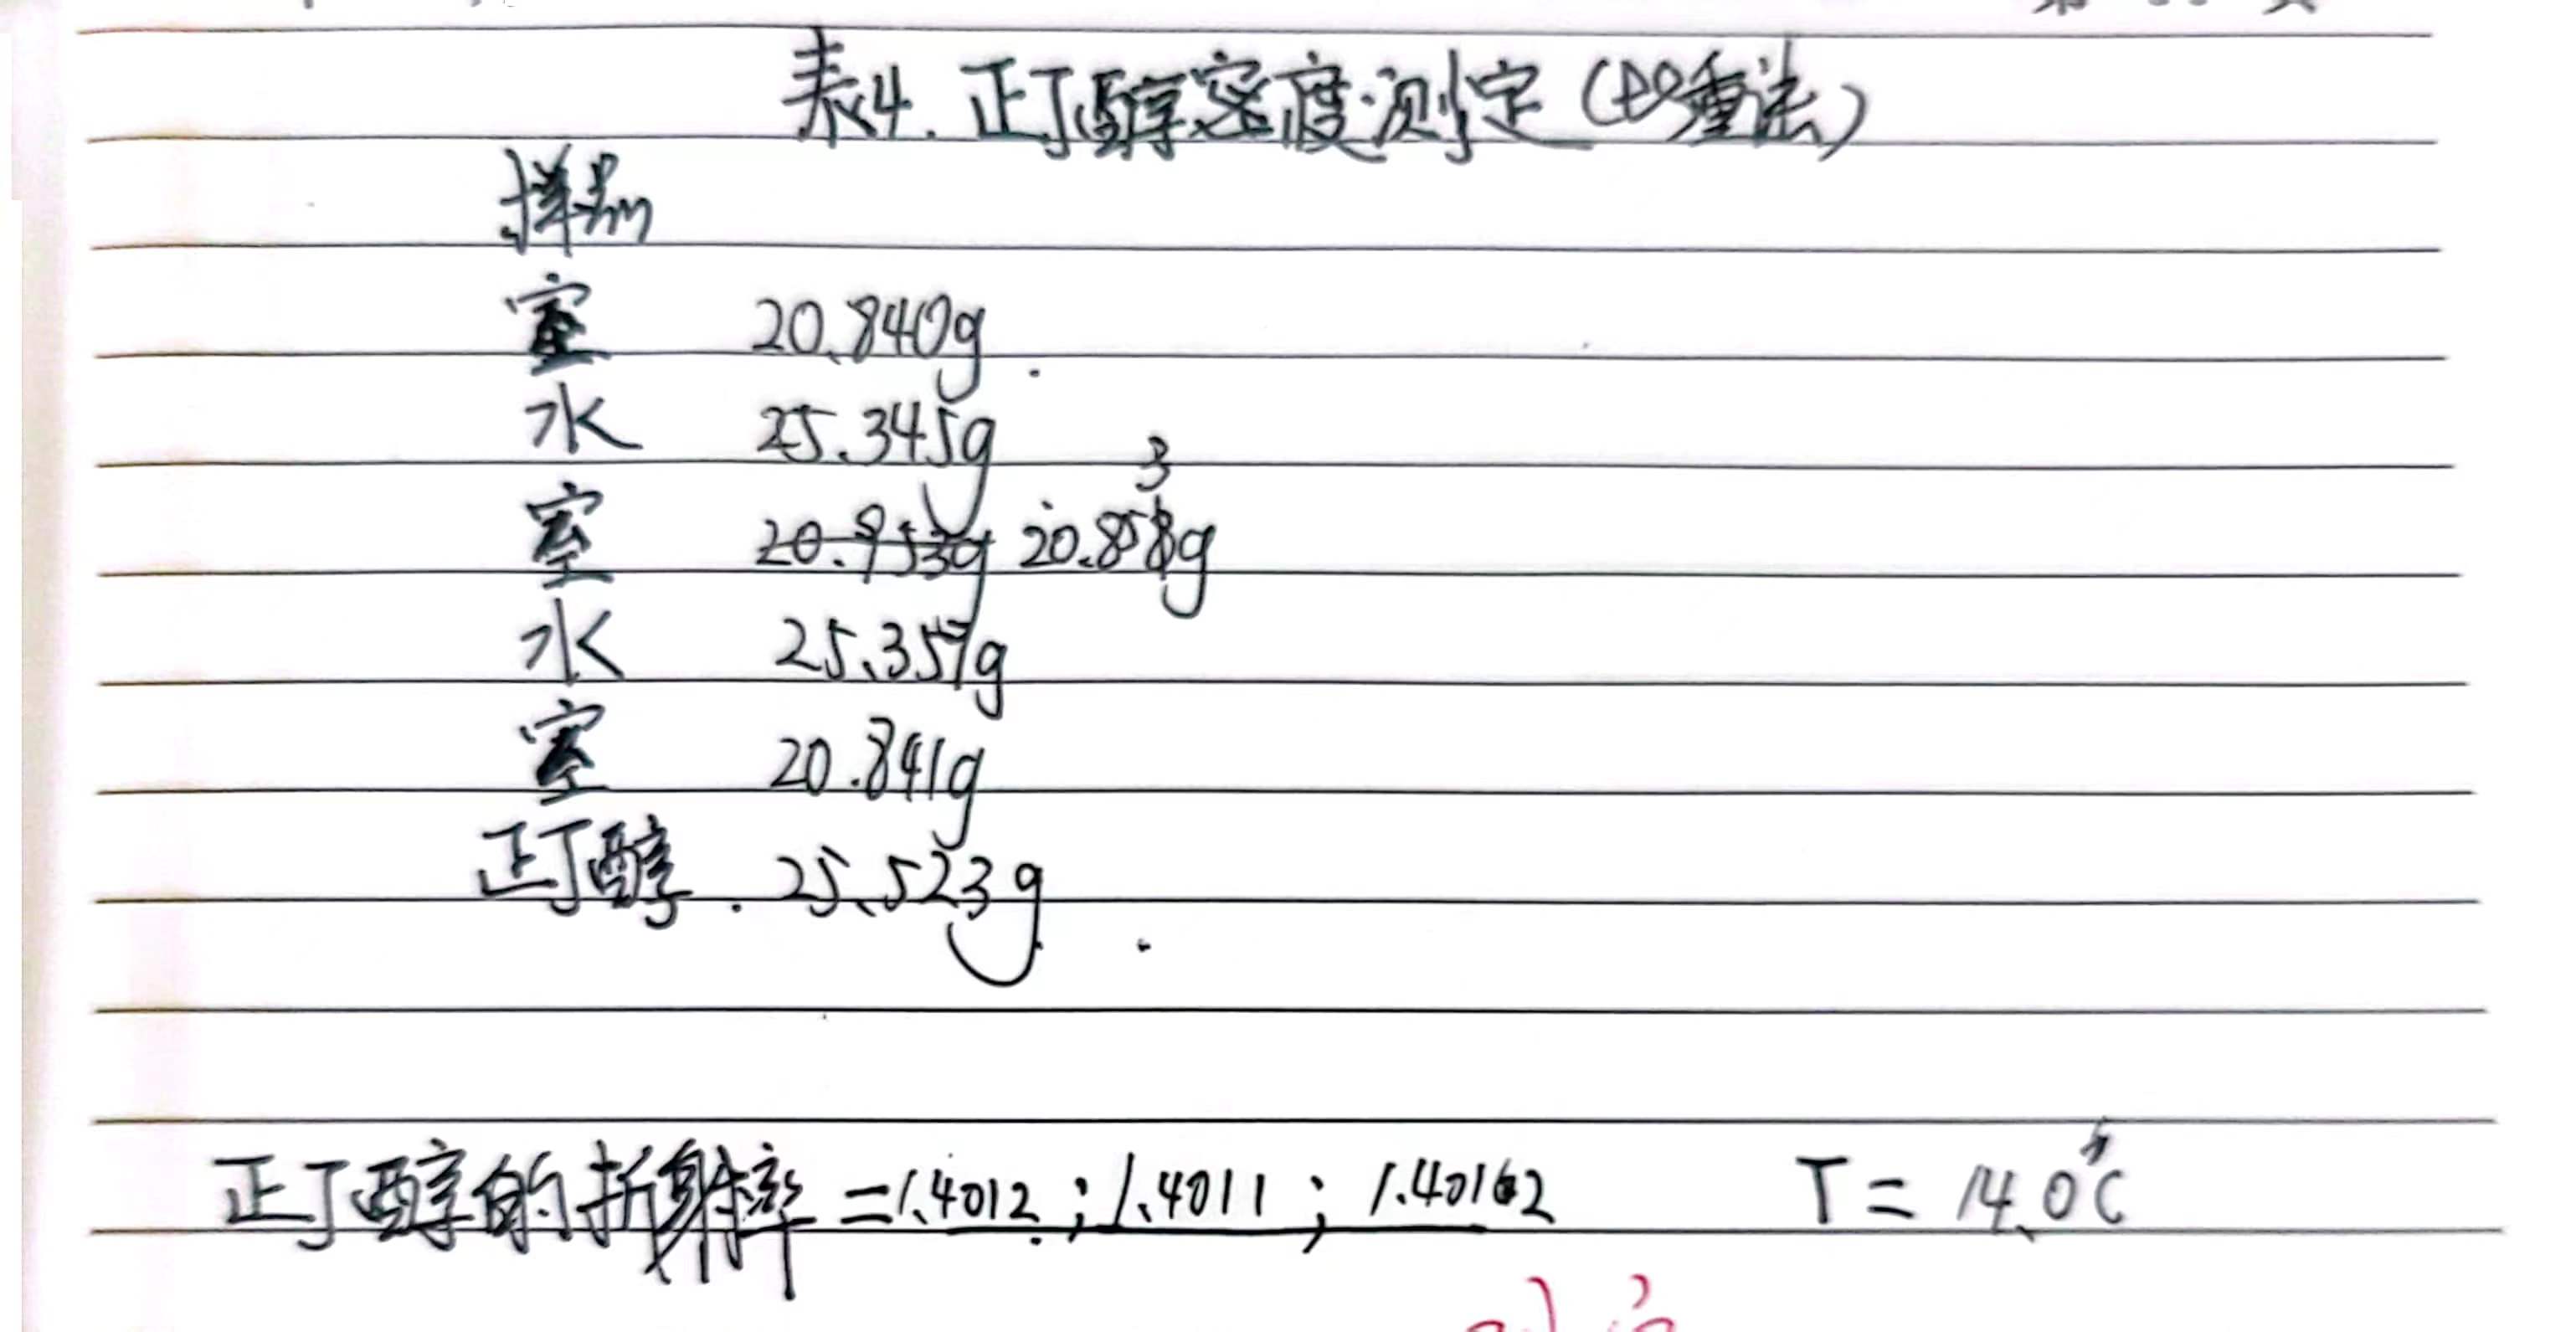 表4. 正丁醇密度测定(比重法)
样品
空 20.840g
水 25.345g
空 20.953g 20.853g
水 25.357g
空 20.841g
正丁醇. 25.523g
正丁醇的折射率=1.4012;1.4011;1.4012 T=14.0℃